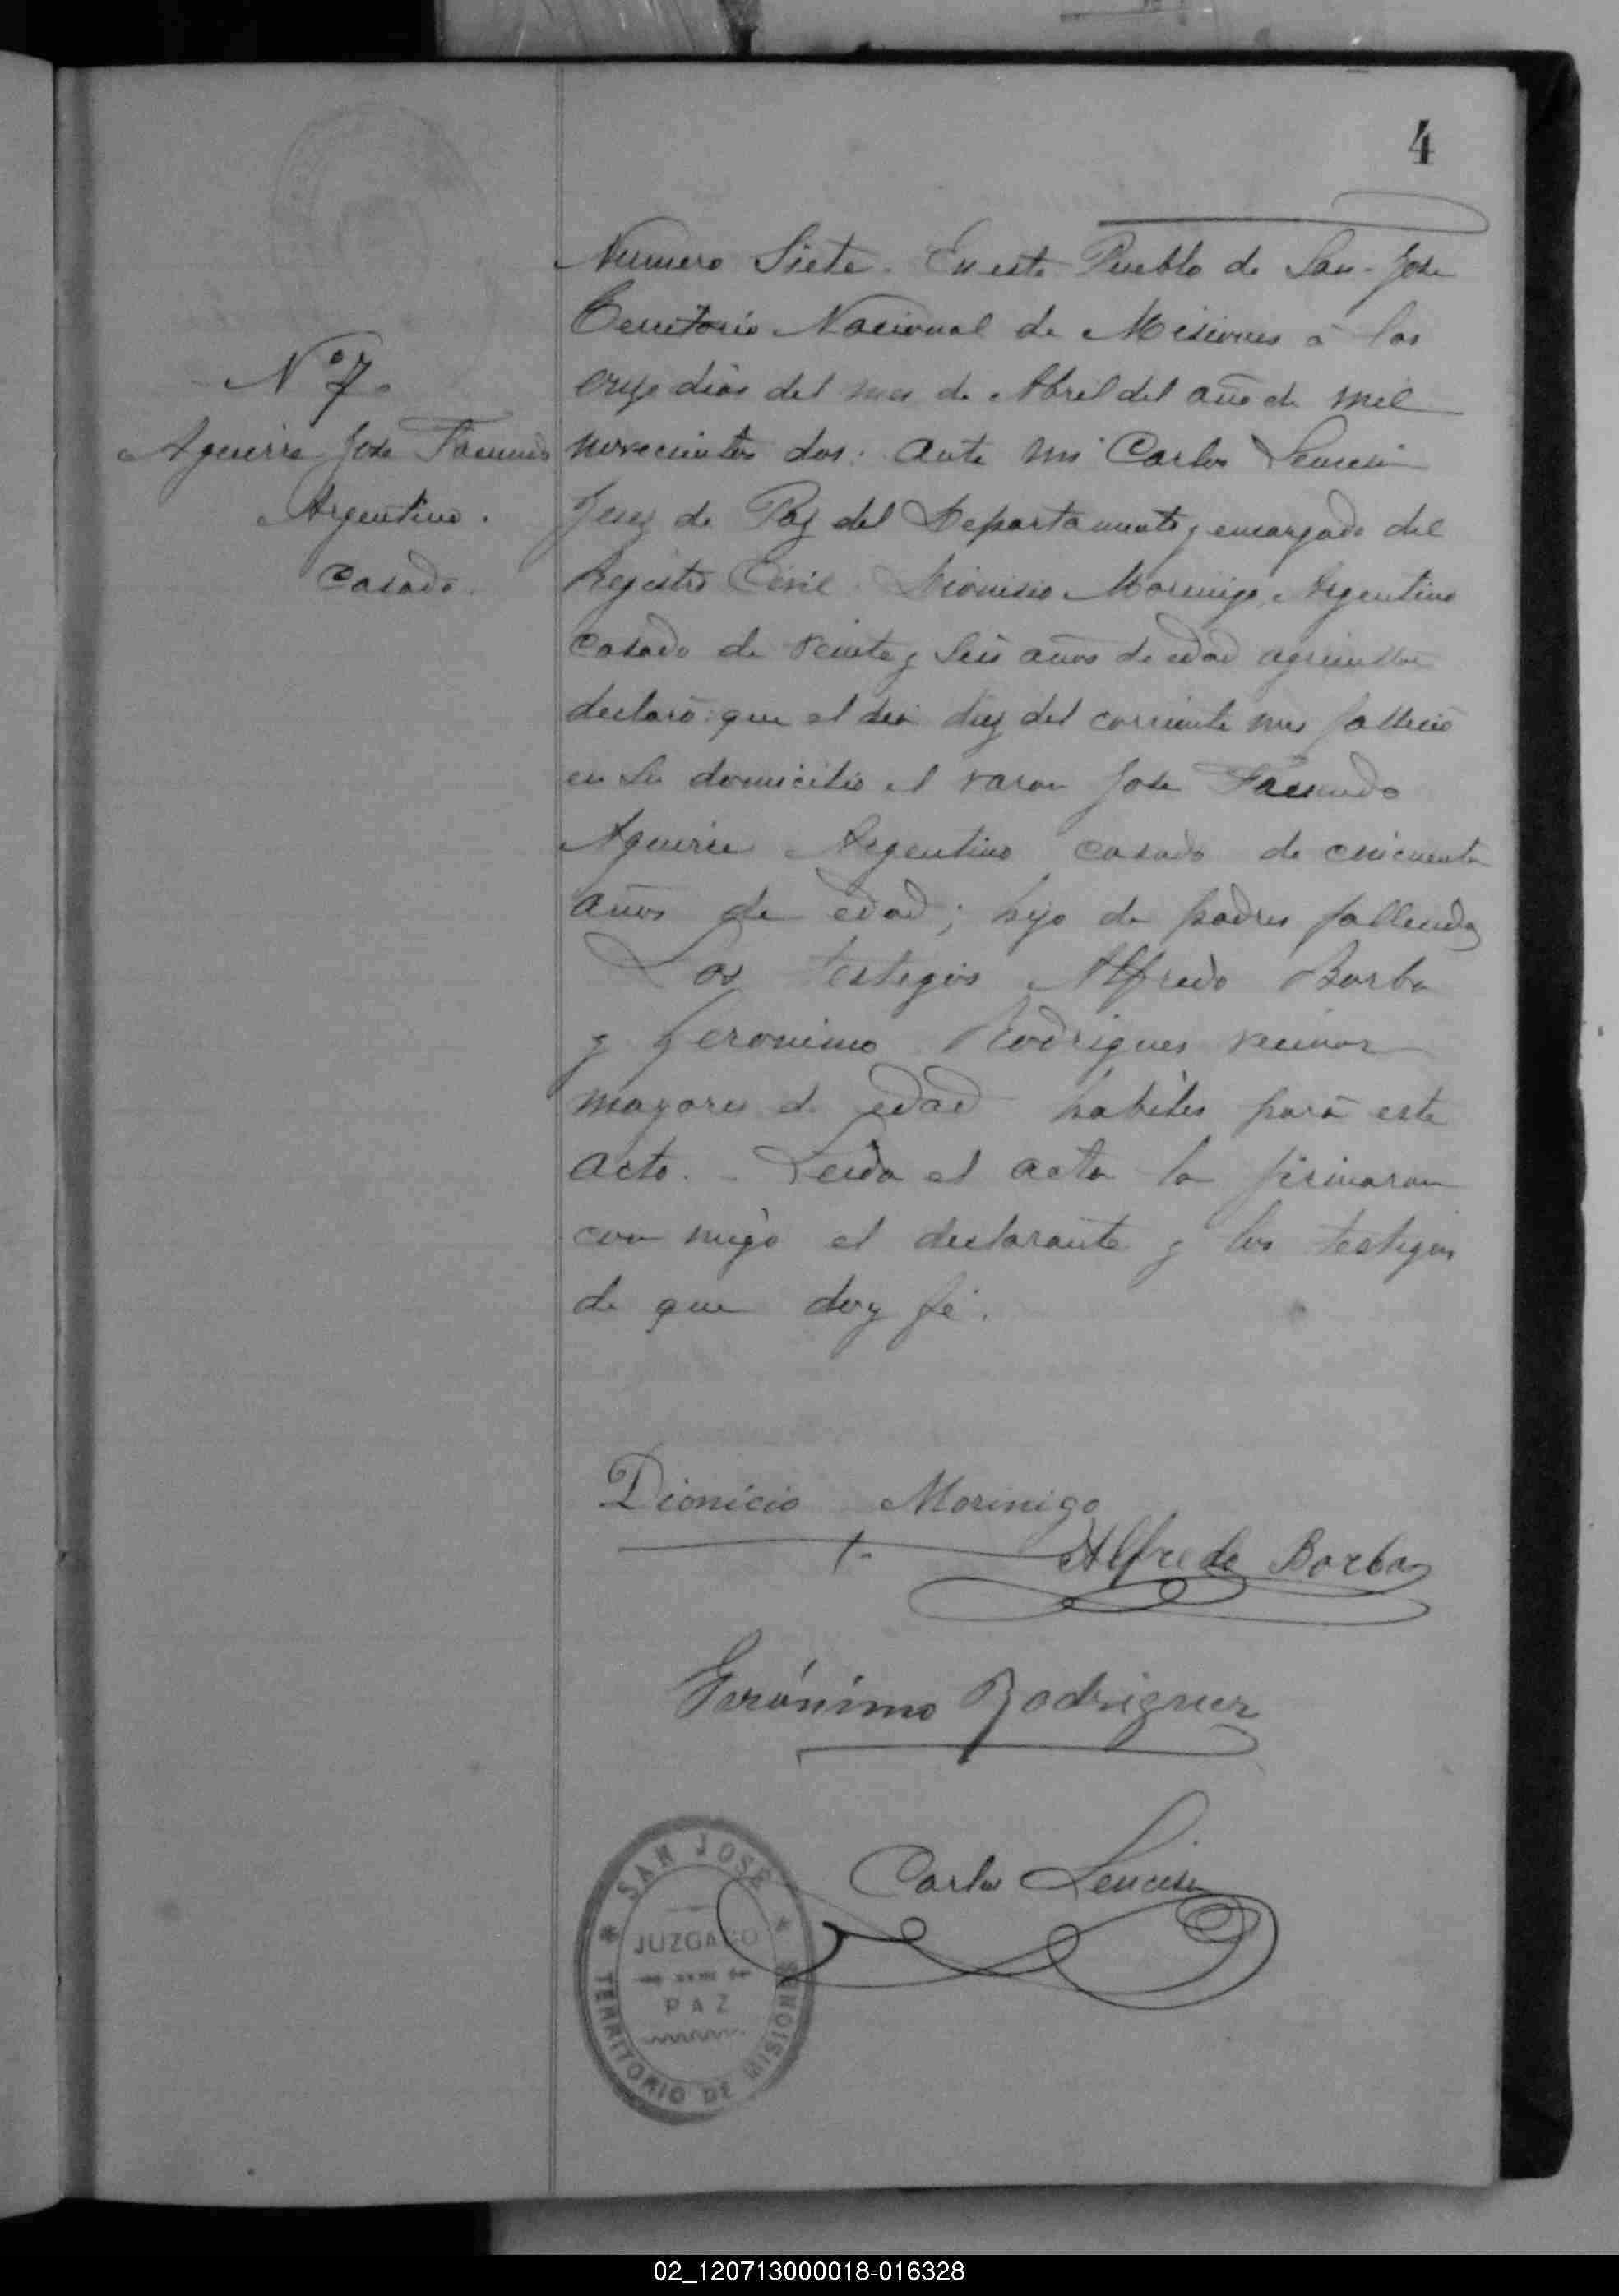 4
Numero Siete. En este Pueblo de San Jose
Territorio Nacional de Misiones á los
onze dias del mes de Abril del año de mil
novecientos dos: ante mi Carlos
Juez de Paz del Departamento y encargado del
Registro Civil Dionisio Morinigo, Argentino
casado de veinte y seis años de edad agricultor
declaró: que el dia diez del corriente mes falleció
en su domicilio el varon Jose Facundo
Aguirre Argentino casado de cincuenta
años de edad; hijo de padres fallecidos
Los testigos Alfredo Borba
y Geronimo Rodrigues vecinos
mayores de edad habiles para este
acto. - Leida el acta la firmaron
con migo el declarante y los testigos
de que doy fé.
Nº 7.
Aguirre Jose Facundo
Argentino.
Casado.
Dionicio Morinigo
Alfredo Borba
Gerónimo Rodriguez
Carlos
SAN JOSÉ
JUZGADO
PAZ
TERRITORIO DE MISIONES
02_120713000018-016328